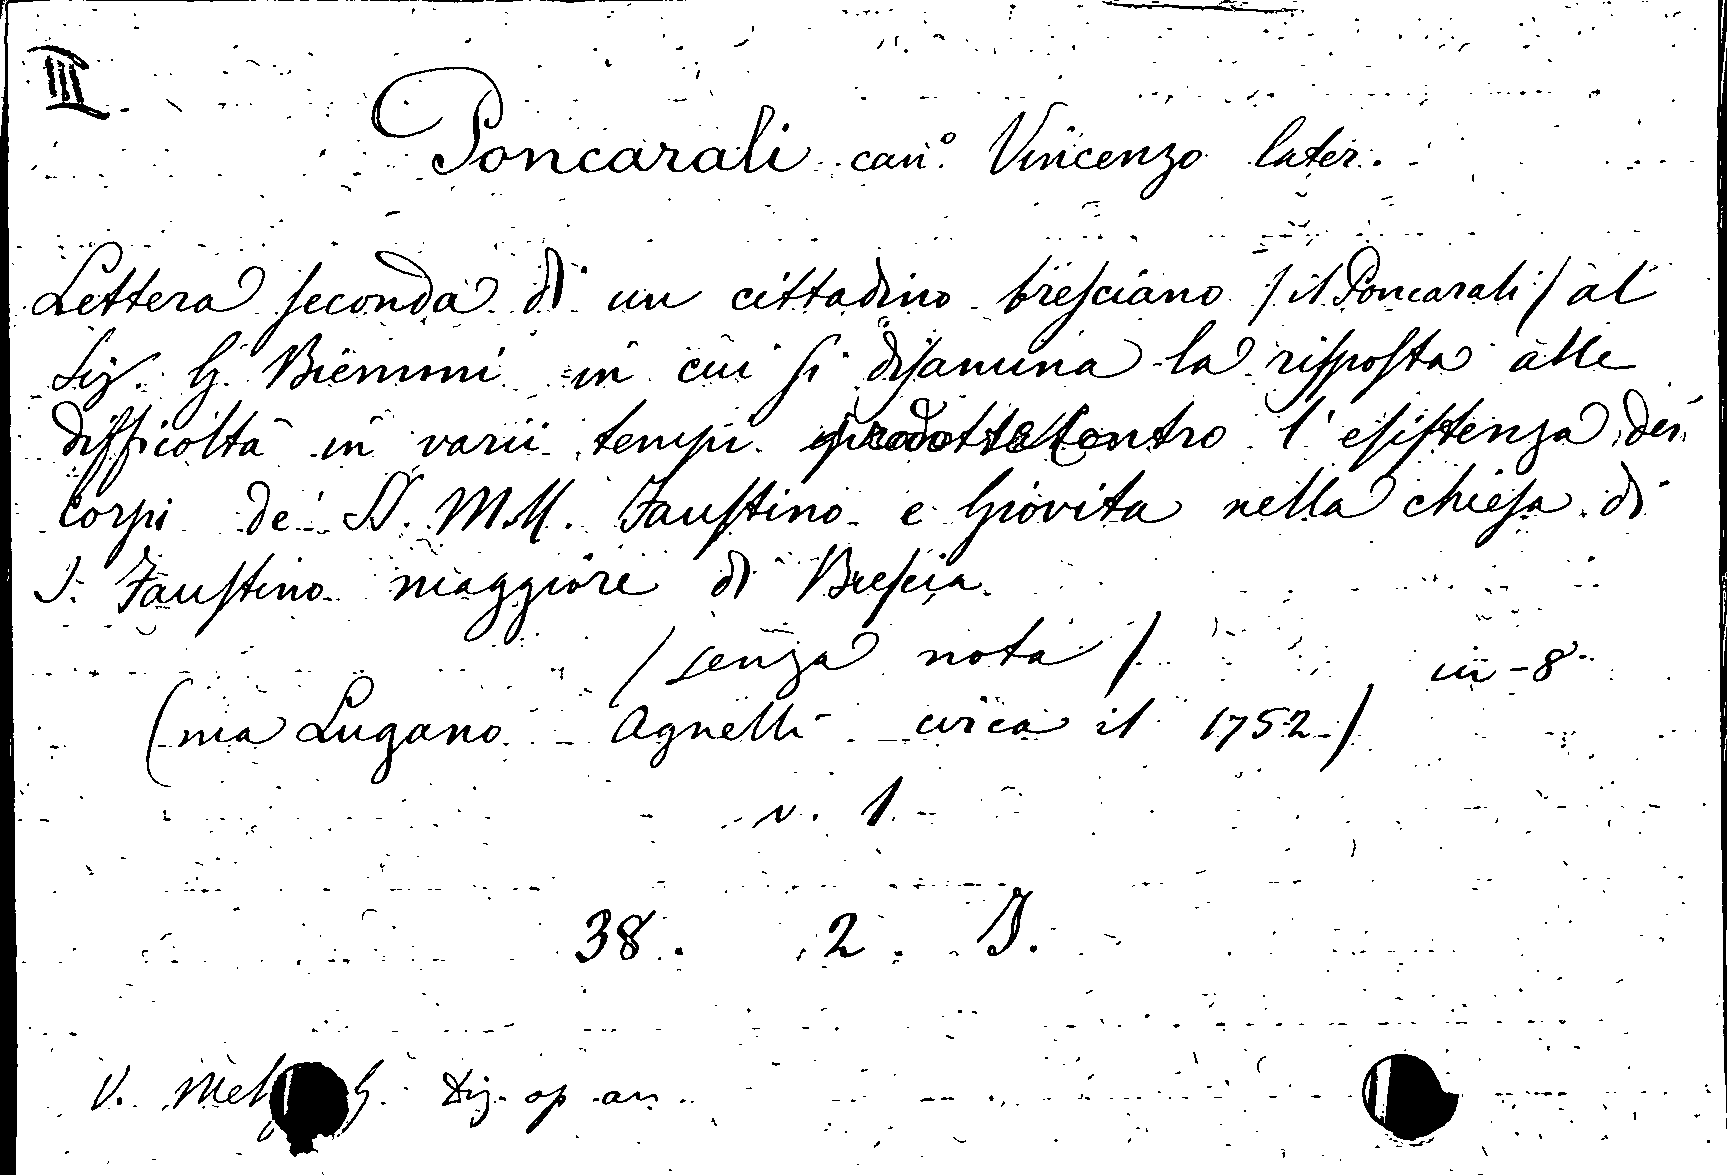 III
Poncarali can.º Vincenzo later.
Lettera seconda di un cittadino bresciano / il Poncarali / al
Sig. G. Biemmi in cui si disamina la risposta alle
difficoltà in varii tempi prodotte contro l'esistenza dei
corpi de' SS. M.M. Faustino e Giovita nella chiesa di
S. Faustino maggiore di Brescia.
/ senza nota / in-8
(ma Lugano Agnelli circa il 1752)
v. 1.
38. 2. I.
V. Melz G. Diz. op an.